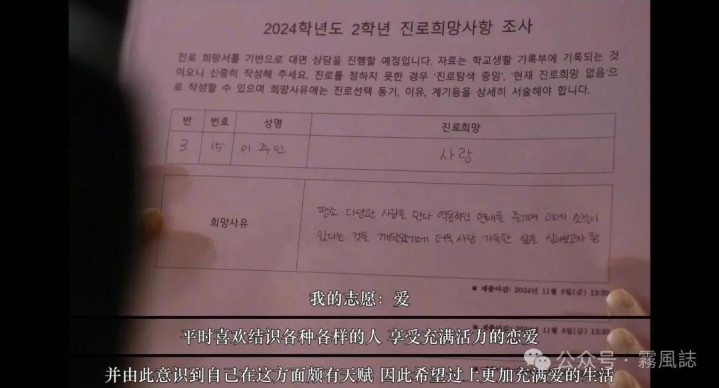 2024학년도 2학년 진로희망사항 조사
진로 희망서를 기반으로 대면 상담을 진행할 예정입니다. 자료는 학교생활 기록부에 기록되는 것
이오니 신중히 작성해 주세요. 진로를 정하지 못한 경우 '진로탐색 중임', '현재 진로희망 없음'으
로 작성할 수 있으며 희망사유에는 진로선택 동기, 이유, 계기등을 상세히 서술해야 합니다.
반 번호 성명 진로희망
3 15 이주인 사랑
희망사유
평소 다양한 사람을 만나 역동적인 연애를 즐기며 이에 소질이
있다는 것을 깨달았기에 더욱 사랑 가득한 삶을 살아보고자 함
■ 제출마감: 2024년 11월 8일(금) 13:30
11월 8일(금) 13:30
我的志愿：爱
平时喜欢结识各种各样的人 享受充满活力的恋爱
并由此意识到自己在这方面颇有天赋 因此希望过上更加充满爱的生活
公众号 · 霧風誌